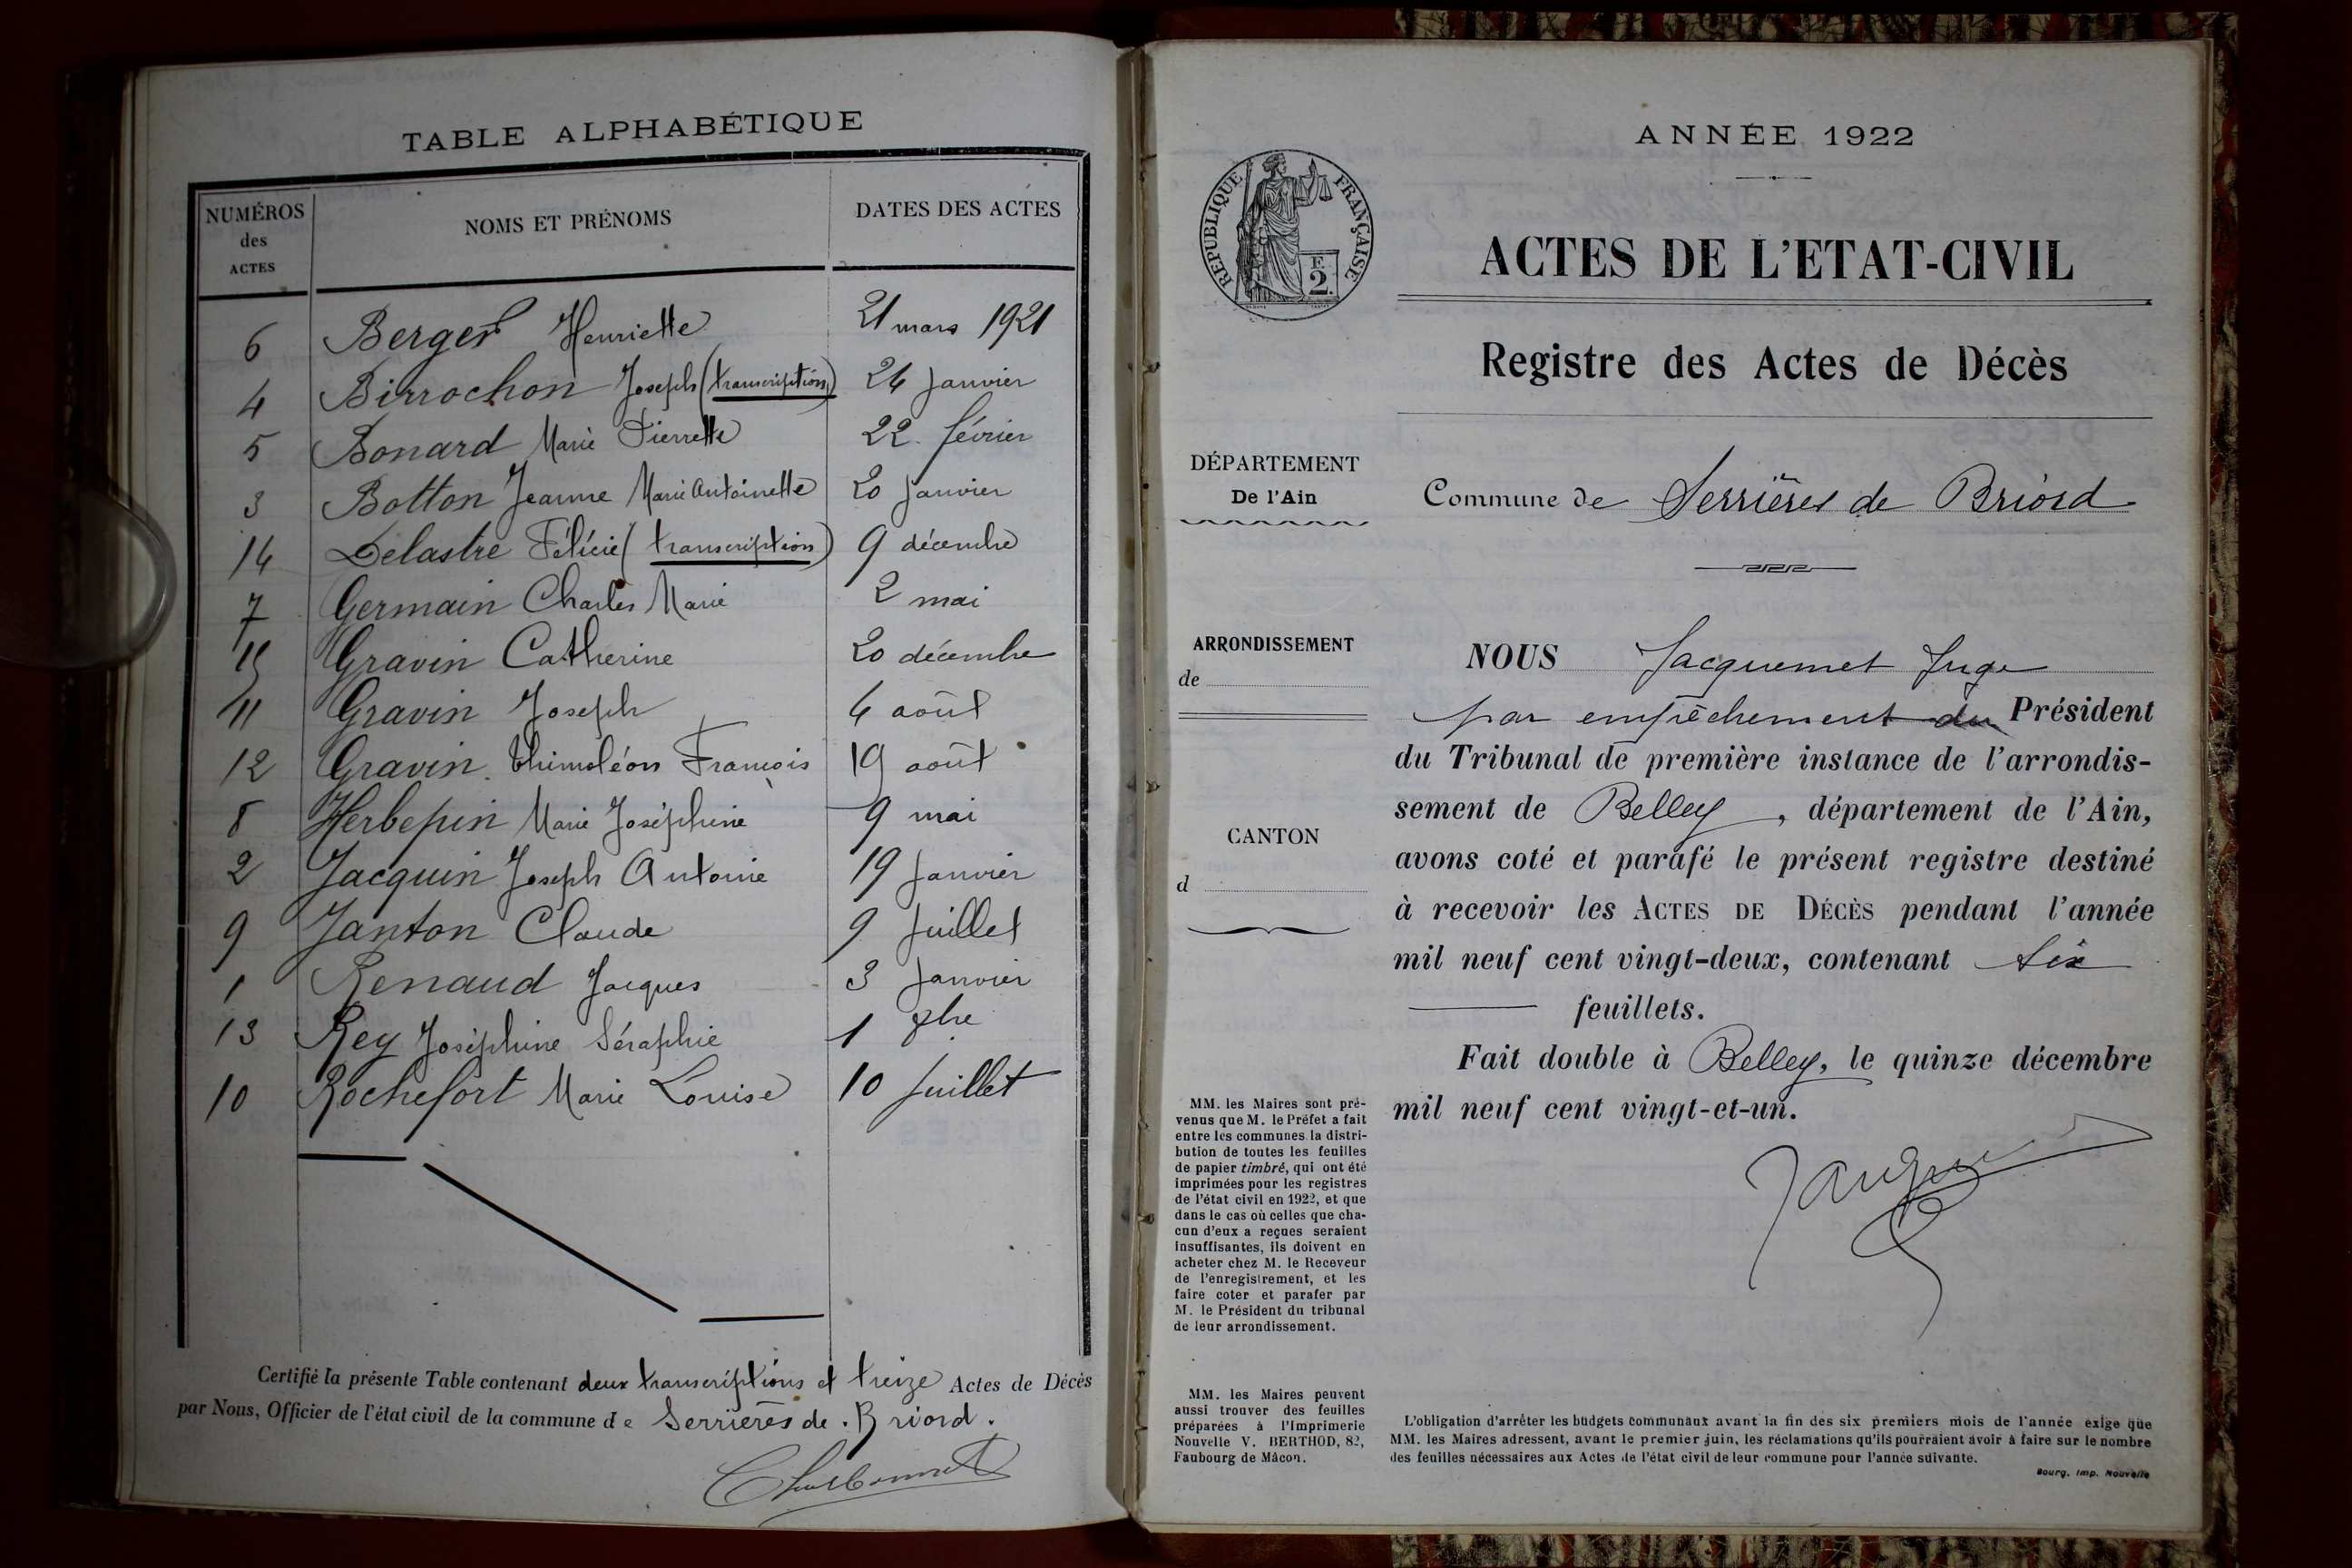 TABLE ALPHABÉTIQUE
NUMÉROS des ACTES NOMS ET PRÉNOMS DATES DES ACTES
6 Berger Henriette 21 mars 1921
4 Birrochon Joseph (transcription) 24 janvier
5 Bonard Marie Pierrette 22 février
3 Botton Jeanne Marie Antoinette 20 janvier
14 Delastre Félicie (transcription) 9 décembre
7 Germain Charles Marie 2 mai
15 Gravin Catherine 20 décembre
11 Gravin Joseph 4 août
12 Gravin Thimoléon François 19 août
8 Herbepin Marie Joséphine 9 mai
2 Jacquin Joseph Antoine 19 janvier
9 Janton Claude 9 juillet
1 Renaud Jacques 3 janvier
13 Rey Joséphine Séraphie 1
10 Rochefort Marie Louise 10 juillet
Certifié la présente Table contenant deux transcriptions et treize Actes de Décès
par Nous, Officier de l'état civil de la commune de Serrières de Briord.
ANNÉE 1922
RÉPUBLIQUE FRANÇAISE
F.
2.
ACTES DE L'ETAT-CIVIL
Registre des Actes de Décès
DÉPARTEMENT
De l'Ain
Commune de Serrières de Briord
ARRONDISSEMENT
de
CANTON
d
NOUS Jacquemet Juge
par empêchement du Président
du Tribunal de première instance de l'arrondis-
sement de Belley, département de l'Ain,
avons coté et parafé le présent registre destiné
à recevoir les ACTES DE DÉCÈS pendant l'année
mil neuf cent vingt-deux, contenant six
feuillets.
Fait double à Belley, le quinze décembre
mil neuf cent vingt-et-un.
MM. les Maires sont pré-
venus que M. le Préfet a fait
entre les communes la distri-
bution de toutes les feuilles
de papier timbré, qui ont été
imprimées pour les registres
de l'état civil en 1922, et que
dans le cas où celles que cha-
cun d'eux a reçues seraient
insuffisantes, ils doivent en
acheter chez M. le Receveur
de l'enregistrement, et les
faire coter et parafer par
M. le Président du tribunal
de leur arrondissement.
MM. les Maires peuvent
aussi trouver des feuilles
préparées à l'Imprimerie
Nouvelle V. BERTHOD, 82,
Faubourg de Mâcon.
L'obligation d'arrêter les budgets communaux avant la fin des six premiers mois de l'année exige que
MM. les Maires adressent, avant le premier juin, les réclamations qu'ils pourraient avoir à faire sur le nombre
des feuilles nécessaires aux Actes de l'état civil de leur commune pour l'année suivante.
Bourg. Imp. Nouvelle